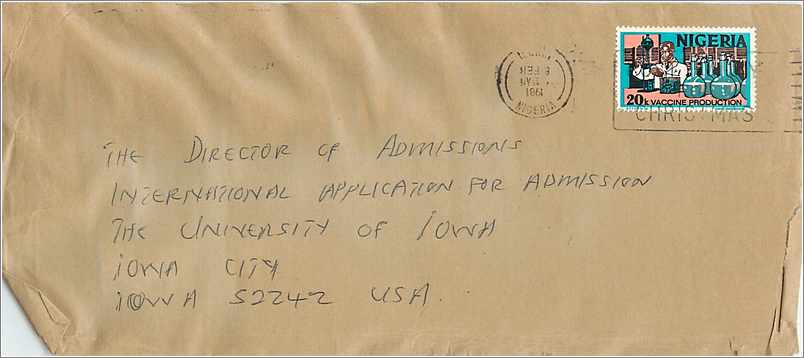 NIGERIA
20k VACCINE PRODUCTION
1981
NIGERIA
CHRISTMAS
THE DIRECTOR OF ADMISSIONS
INTERNATIONAL APPLICATION FOR ADMISSION
THE UNIVERSITY OF IOWA
IOWA CITY
IOWA 52242 USA.